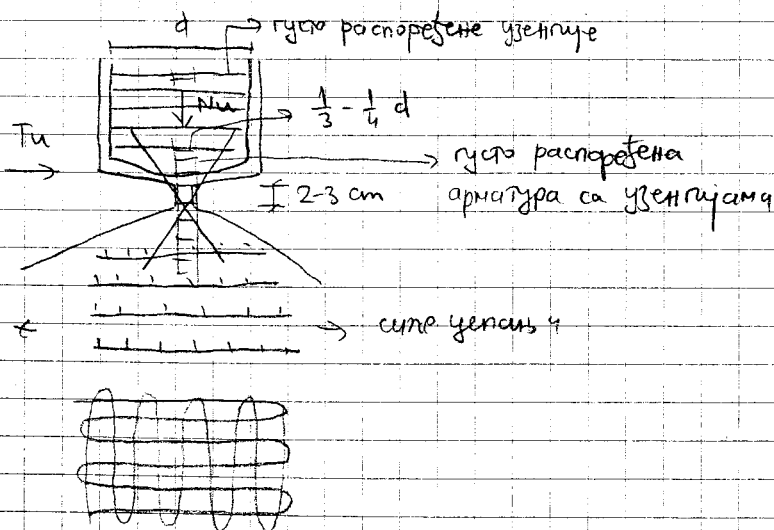 d
густо распоређене узенгије
Nu
1/3 - 1/4 d
Tu
густо распоређена
2-3 cm арматура са узенгијама
силе цепања